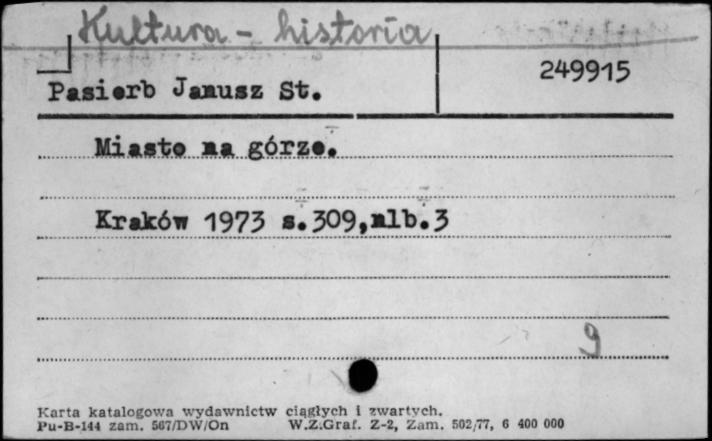 Kultura - historia
249915
Pasierb Janusz St.
Miasto na górze.
Kraków 1973 s.309,nlb.3
9
Karta katalogowa wydawnictw ciągłych i zwartych.
Pu-B-144 zam. 567/DW/On W.Z.Graf. Z-2, Zam. 502/77, 6 400 000